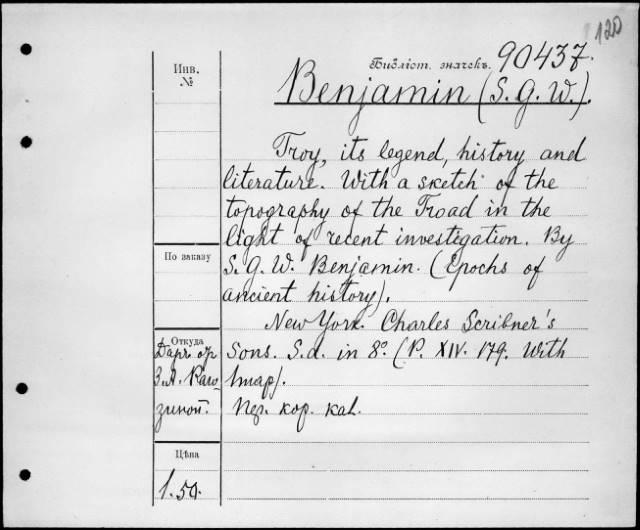 120
Библіот. значекъ. 90437.
Инв.
№
Benjamin (S. G. W.).
Troy, its legend, history and
literature. With a sketch of the
topography of the Troad in the
light of recent investigation. By
По заказу
S. G. W. Benjamin. (Epochs of
ancient history).
New York. Charles Scribner's
Откуда
Sons. S.a. in 8º. (P. XIV. 179. With
1 map).
Дар. от
З. А. Раго-
зиной.
кор. kal.
Цѣна
1.50.